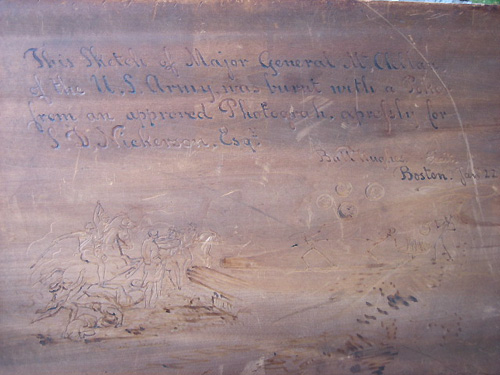 This Sketch of Major General McClellan
of the U.S. Army, was burnt with a
from an approved Photograh, for
S. D. Nickerson, Esqr.
Boston. Jan 22